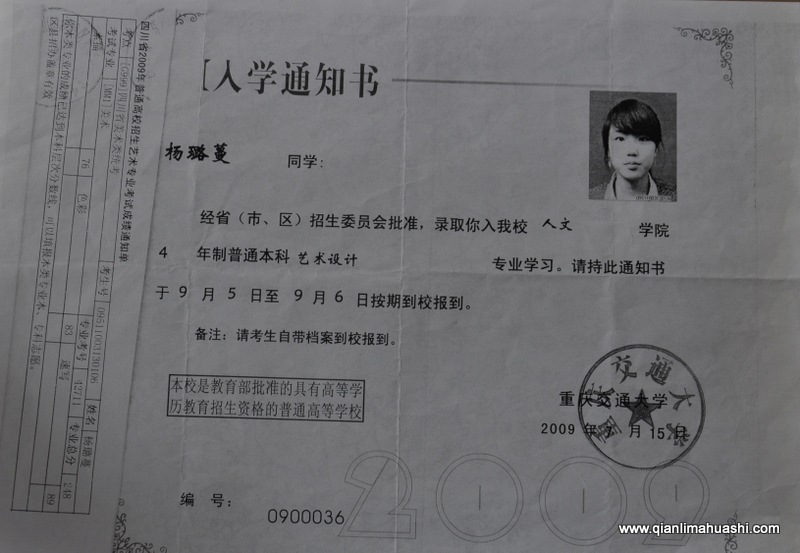 入学通知书
杨璐蔓 同学：
经省（市、区）招生委员会批准，录取你入我校 人文 学院
4 年制普通本科 艺术设计 专业学习。请持此通知书
于 9 月 5 日至 9 月 6 日按期到校报到。
备注：请考生自带档案到校报到。
本校是教育部批准的具有高等学
历教育招生资格的普通高等学校
重庆交通大学
2009 年 月 15 日
重庆交通大学
编 号： 0900036
2009
四川省2009年普通高校招生艺术专业考试成绩通知单
考点 [0999]四川省美术类统考 考生号 09511003130108 姓名 杨璐蔓
考试专业 [MM1]美术 专业考号 42711 专业总分 248
76 色彩 83 速写 89
你本类专业的成绩已达到本科层次分数线，可以填报本类专业本、专科志愿。
区县招办盖章有效
www.qianlimahuashi.com